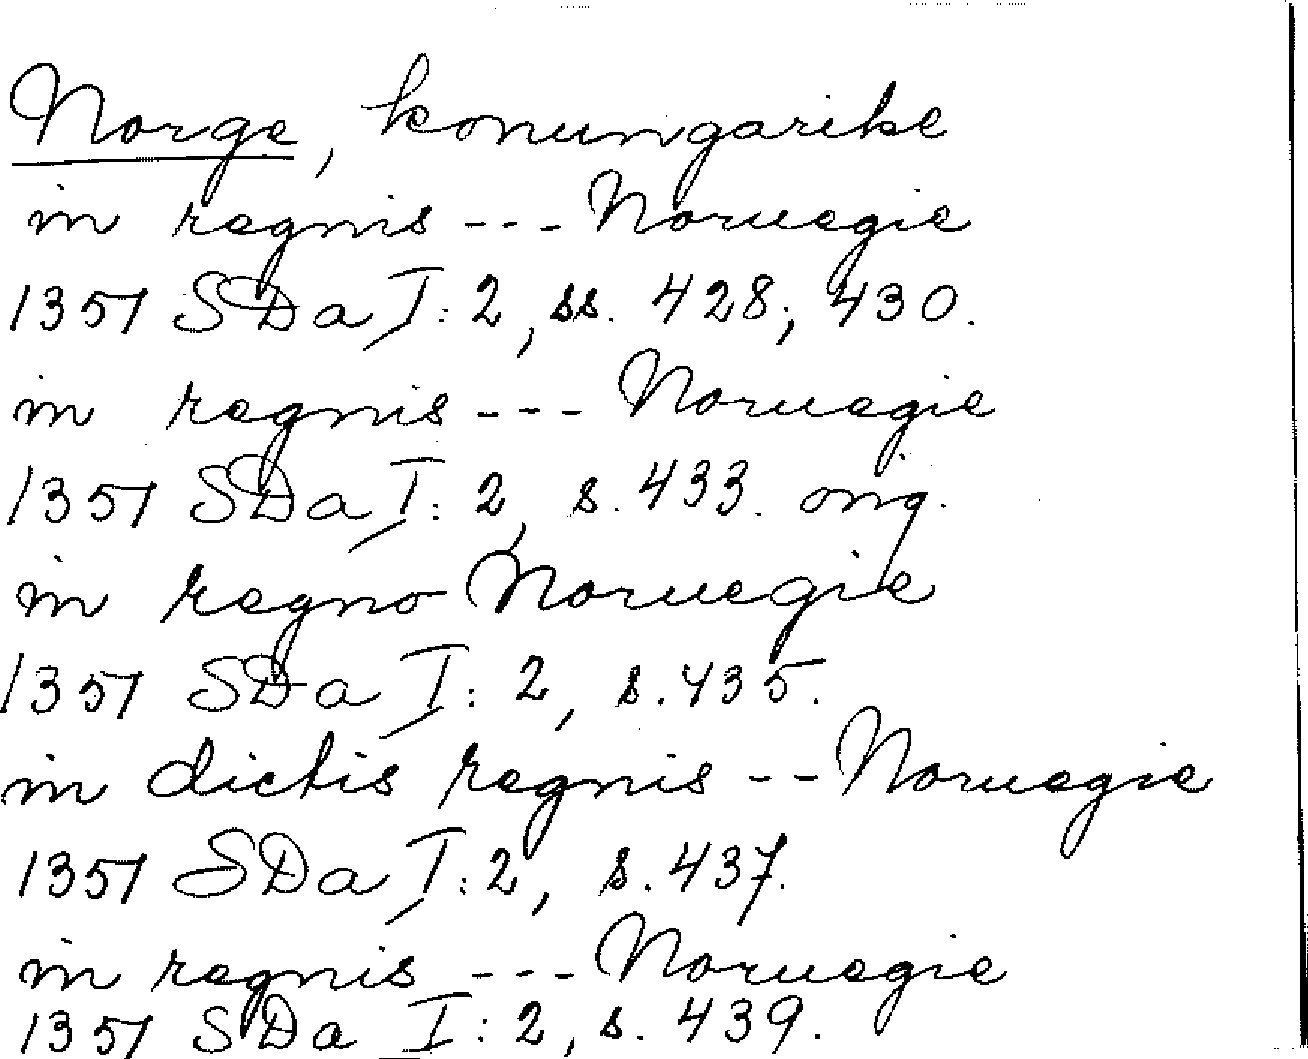 Norge, konungarike
in regnis --- Noruegie
1351 SDa I: 2, ss. 428, 430.
in regnis --- Noruegie
1351 SDa I: 2, s. 433. orig.
in regno Noruegie
1351 SDa I: 2, s. 435.
in dictis regnis -- Noruegie
1351 SDa I: 2, s. 437.
in regnis --- Noruegie
1351 SDa I: 2, s. 439.